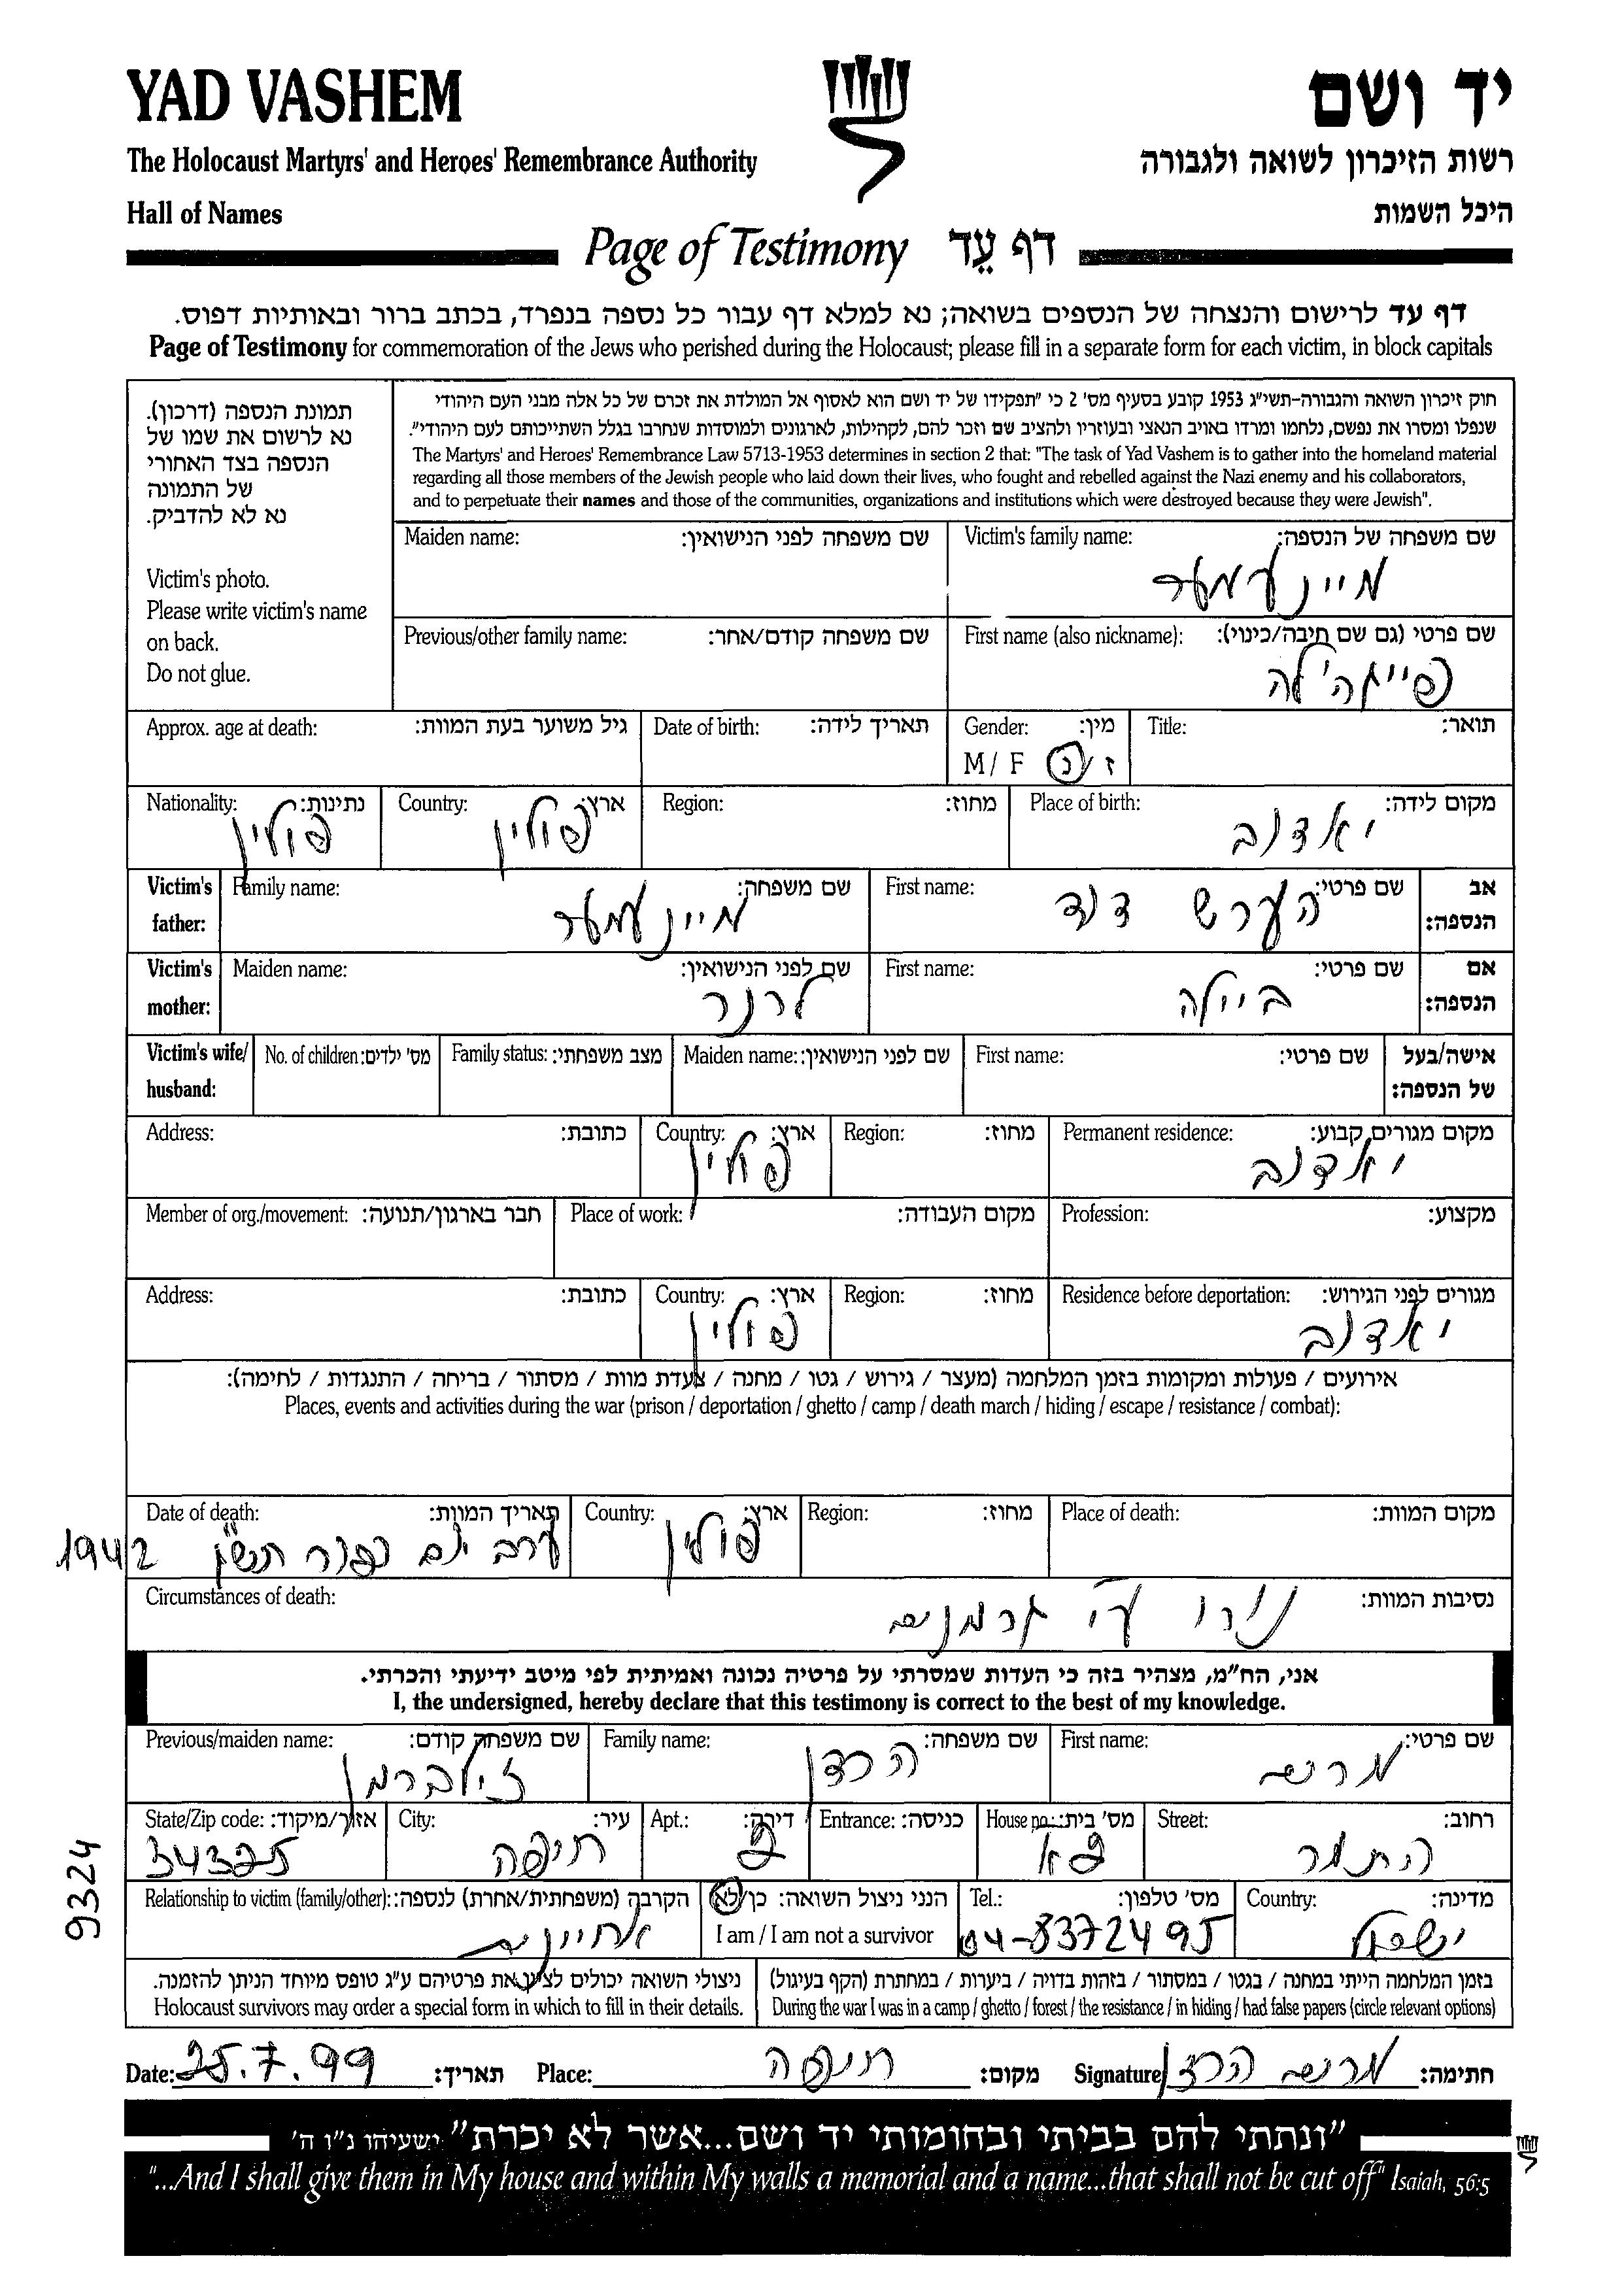 YAD VASHEM
יד ושם
The Holocaust Martyrs' and Heroes' Remembrance Authority
רשות הזיכרון לשואה ולגבורה
Hall of Names
היכל השמות
Page of Testimony דף עֵד
דף עד לרישום והנצחה של הנספים בשואה; נא למלא דף עבור כל נספה בנפרד, בכתב ברור ובאותיות דפוס.
Page of Testimony for commemoration of the Jews who perished during the Holocaust; please fill in a separate form for each victim, in block capitals
תמונת הנספה (דרכון).
נא לרשום את שמו של
הנספה בצד האחורי
של התמונה
נא לא להדביק.
Victim's photo.
Please write victim's name
on back.
Do not glue.
חוק זיכרון השואה והגבורה-תשי"ג 1953 קובע בסעיף מס' 2 כי "תפקידו של יד ושם הוא לאסוף אל המולדת את זכרם של כל אלה מבני העם היהודי
שנפלו ומסרו את נפשם, נלחמו ומרדו באויב הנאצי ובעוזריו ולהציב שם וזכר להם, לקהילות, לארגונים ולמוסדות שנחרבו בגלל השתייכותם לעם היהודי".
The Martyrs' and Heroes' Remembrance Law 5713-1953 determines in section 2 that: "The task of Yad Vashem is to gather into the homeland material
regarding all those members of the Jewish people who laid down their lives, who fought and rebelled against the Nazi enemy and his collaborators,
and to perpetuate their names and those of the communities, organizations and institutions which were destroyed because they were Jewish".
Victim's family name: שם משפחה של הנספה:
מיינעמער
Maiden name: שם משפחה לפני הנישואין:
First name (also nickname): שם פרטי (גם שם חיבה/כינוי):
פייגה'לה
Previous/other family name: שם משפחה קודם/אחר:
Title: תואר:
Gender: מין:
M / F ז / נ
Date of birth: תאריך לידה:
Approx. age at death: גיל משוער בעת המוות:
Place of birth: מקום לידה:
יאדוב
Region: מחוז:
Country: ארץ:
פולין
Nationality: נתינות:
פולין
Victim's father: אב הנספה:
First name: שם פרטי:
הערש דוד
Family name: שם משפחה:
מיינעמער
Victim's mother: אם הנספה:
First name: שם פרטי:
ביילה
Maiden name: שם לפני הנישואין:
לרנר
Victim's wife/ husband: אישה/בעל של הנספה:
First name: שם פרטי:
Maiden name: שם לפני הנישואין:
Family status: מצב משפחתי:
No. of children: מס' ילדים:
Permanent residence: מקום מגורים קבוע:
יאדוב
Region: מחוז:
Country: ארץ:
פולין
Address: כתובת:
Profession: מקצוע:
Place of work: מקום העבודה:
Member of org./movement: חבר בארגון/תנועה:
Residence before deportation: מגורים לפני הגירוש:
יאדוב
Region: מחוז:
Country: ארץ:
פולין
Address: כתובת:
אירועים / פעולות ומקומות בזמן המלחמה (מעצר / גירוש / גטו / מחנה / צעדת מוות / מסתור / בריחה / התנגדות / לחימה):
Places, events and activities during the war (prison / deportation / ghetto / camp / death march / hiding / escape / resistance / combat):
Place of death: מקום המוות:
Region: מחוז:
Country: ארץ:
פולין
Date of death: תאריך המוות:
ערב יום כפור 1942
Circumstances of death: נסיבות המוות:
נורו ע"י גרמנים
אני, הח"מ, מצהיר בזה כי העדות שמסרתי על פרטיה נכונה ואמיתית לפי מיטב ידיעתי והכרתי.
I, the undersigned, hereby declare that this testimony is correct to the best of my knowledge.
First name: שם פרטי:
מרים
Family name: שם משפחה:
הרדן
Previous/maiden name: שם משפחה קודם:
זילברמן
Street: רחוב:
התמר
House no.: מס' בית:
Entrance: כניסה:
Apt.: דירה:
City: עיר:
חיפה
State/Zip code: אזור/מיקוד:
34325
Country: מדינה:
ישראל
Tel.: מס' טלפון:
04-8372495
הנני ניצול השואה: כן/לא
I am / I am not a survivor
Relationship to victim (family/other): הקרבה (משפחתית/אחרת) לנספה:
אחיינים
בזמן המלחמה הייתי במחנה / בגטו / במסתור / בזהות בדויה / ביערות / במחתרת (הקף בעיגול)
During the war I was in a camp / ghetto / forest / the resistance / in hiding / had false papers (circle relevant options)
ניצולי השואה יכולים לציין את פרטיהם ע"ג טופס מיוחד הניתן להזמנה.
Holocaust survivors may order a special form in which to fill in their details.
9324
Date: 25.7.99 תאריך: Place: חיפה מקום: Signature מרים הרדן חתימה:
"ונתתי להם בביתי ובחומותי יד ושם...אשר לא יכרת" ישעיהו נ"ו ה'
"...And I shall give them in My house and within My walls a memorial and a name...that shall not be cut off" Isaiah, 56:5